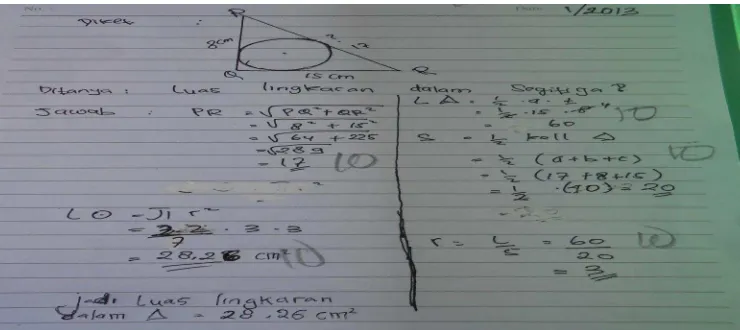 No.
Date: 1/2013
Diket :
P
8cm
x. 17
Q 15 cm R
Ditanya : Luas lingkaran dalam Segitiga ?
Jawab : PR = √PQ² + QR²
= √8² + 15²
= √64 + 225
= √289
= 17
10
L ⊙ = π r²
= 22/7 . 3 . 3
= 28.26 cm²
10
jadi Luas lingkaran
dalam Δ = 28.26 cm²
L Δ = ½ . a . t
= ½ . 15 . 8 4
= 60
10
S = ½ kell Δ
= ½ (a+b+c)
= ½ (17 + 8 + 15)
= ½ . (40) = 20
10
r = L/s = 60/20
= 3
10